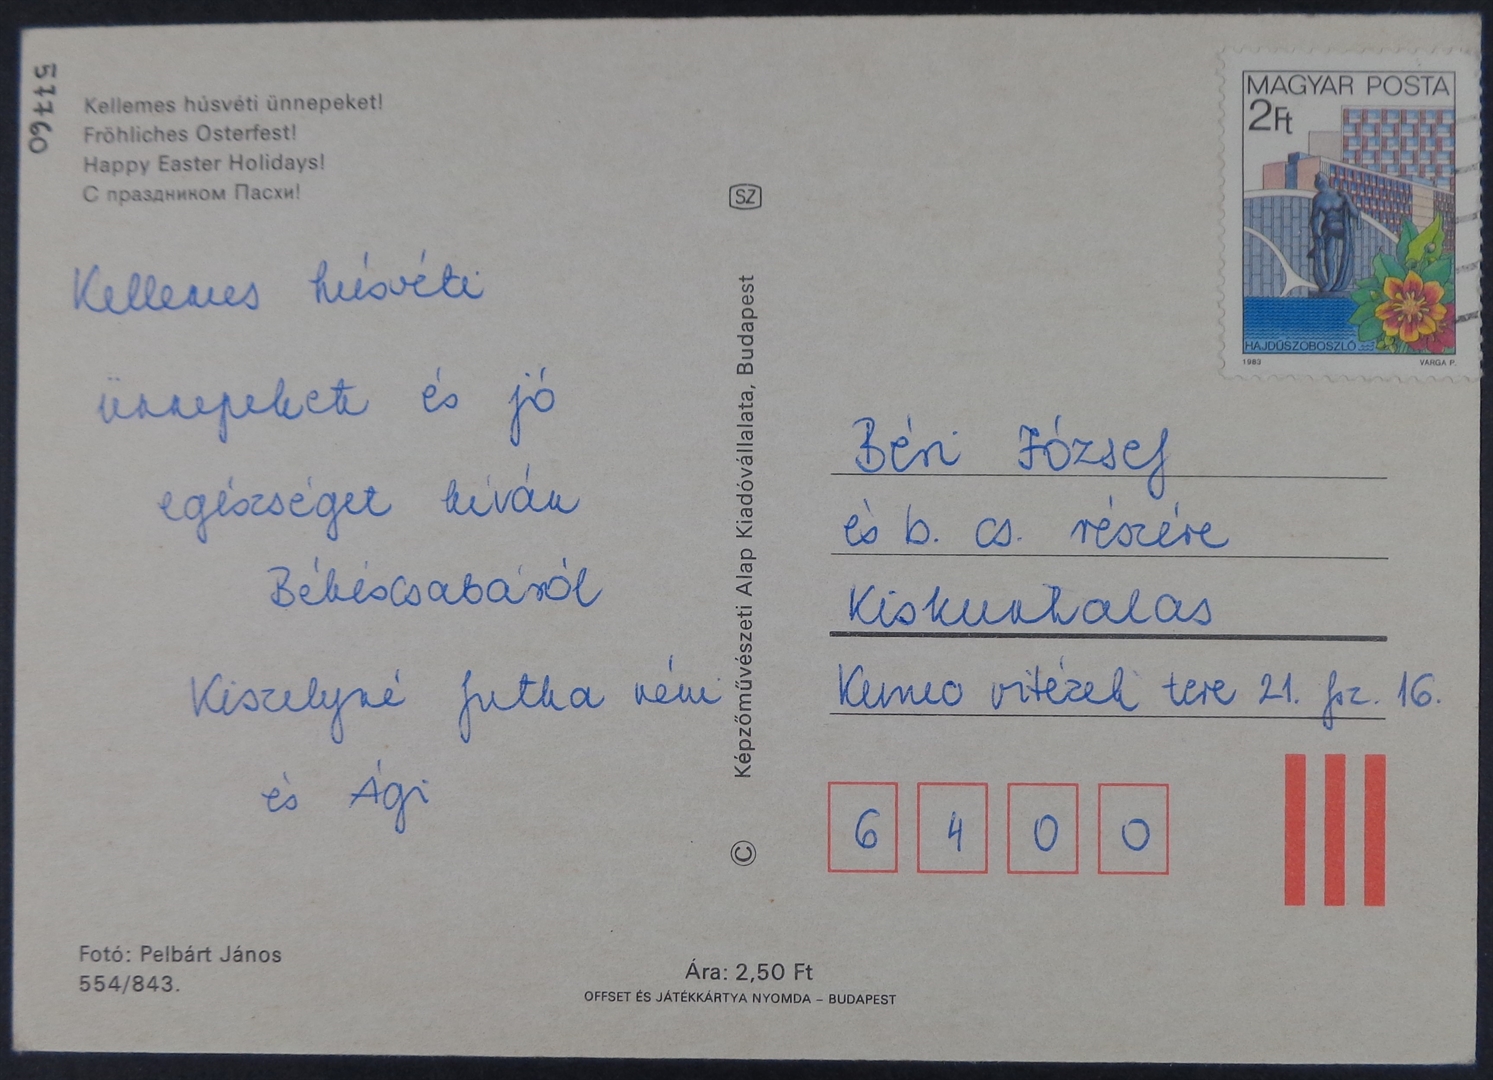 57760
Kellemes húsvéti ünnepeket!
Fröhliches Osterfest!
Happy Easter Holidays!
С праздником Пасхи!
Kellemes húsvéti
ünnepeket és jó
egészséget kíván
Békéscsabáról
Kiszelyné Jutka néni
és Ági
Fotó: Pelbárt János
554/843.
SZ
Képzőművészeti Alap Kiadóvállalata, Budapest
©
Ára: 2,50 Ft
OFFSET ÉS JÁTÉKKÁRTYA NYOMDA – BUDAPEST
MAGYAR POSTA
2Ft
HAJDÚSZOBOSZLÓ
1983 VARGA P.
Béri József
és b. cs. részére
Kiskunhalas
vitézek tere 21. fsz. 16.
6400